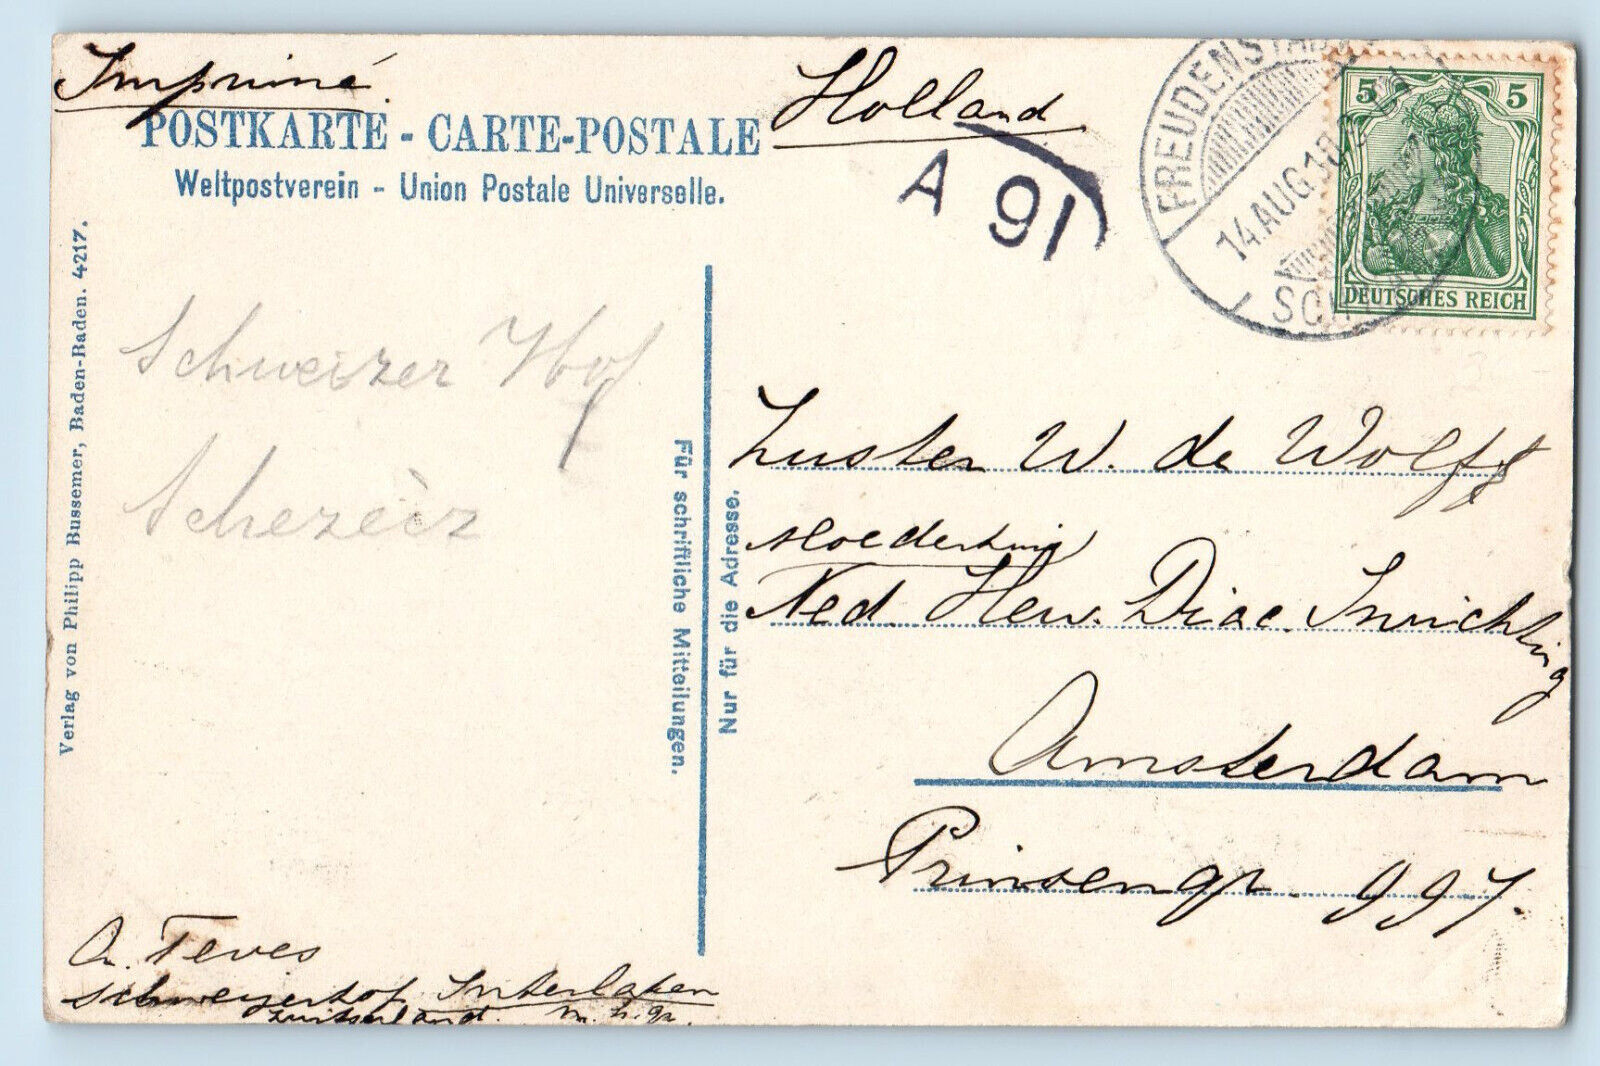 Imprimé.
Holland
POSTKARTE - CARTE-POSTALE
Weltpostverein - Union Postale Universelle.
A 91
FREUDENSTADT
14.AUG.
5 5
DEUTSCHES REICH
Verlag von Philipp Bussemer, Baden-Baden. 4217.
Schweizer Hof
Für schriftliche Mitteilungen.
Nur für die Adresse.
Zuster W. de Wolff
Ned. Herv. Diac. Inrichting
Amsterdam
Prinsengr. 997.
A. Teves
Schweizerhof Interlaken
Zwitserland.